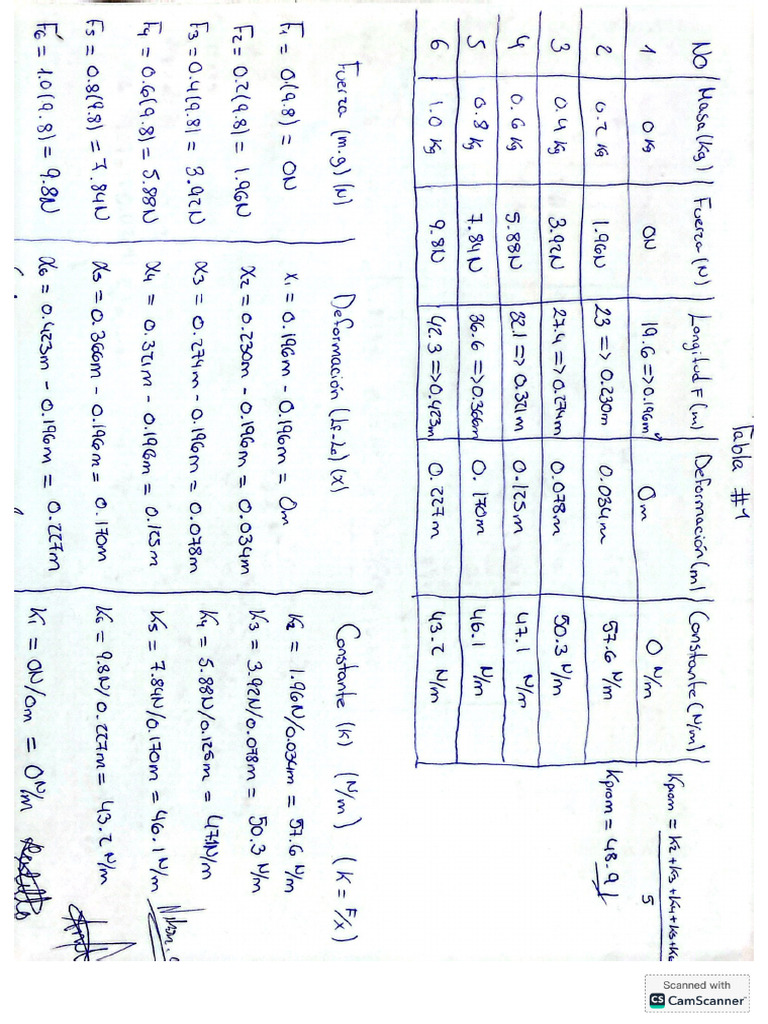 Tabla #1
No Masa(Kg) Fuerza(N) Longitud F(m) Deformación(m) Constante(N/m)
1 0 Kg 0N 19.6=>0.196m 0m 0 N/m
2 0.2 Kg 1.96N 23=>0.230m 0.034m 57.6 N/m
3 0.4 Kg 3.92N 27.4=>0.274m 0.078m 50.3 N/m
4 0.6 Kg 5.88N 32.1=>0.321m 0.125m 47.1 N/m
5 0.8 Kg 7.84N 36.6=>0.366m 0.170m 46.1 N/m
6 1.0 Kg 9.8N 42.3=>0.423m 0.227m 43.2 N/m
Kprom = K2+K3+K4+K5+K6
5
Kprom = 48.9
Fuerza (m.g) (N)
F1 = 0(9.8) = 0N
F2 = 0.2(9.8) = 1.96N
F3 = 0.4(9.8) = 3.92N
F4 = 0.6(9.8) = 5.88N
F5 = 0.8(9.8) = 7.84N
F6 = 1.0(9.8) = 9.8N
Deformación (Lf-Lo) (x)
x1 = 0.196m - 0.196m = 0m
x2 = 0.230m - 0.196m = 0.034m
x3 = 0.274m - 0.196m = 0.078m
x4 = 0.321m - 0.196m = 0.125m
x5 = 0.366m - 0.196m = 0.170m
x6 = 0.423m - 0.196m = 0.227m
Constante (K) (N/m) (K = F/x)
K2 = 1.96N/0.034m = 57.6 N/m
K3 = 3.92N/0.078m = 50.3 N/m
K4 = 5.88N/0.125m = 47.1N/m
K5 = 7.84N/0.170m = 46.1 N/m
K6 = 9.8N/0.227m = 43.2 N/m
K1 = 0N/0m = 0N/m
Scanned with
CS CamScanner